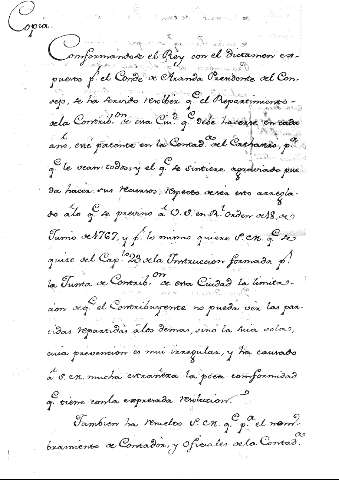 Copia
Conformandose el Rey con el dictamen ex-
puesto pr. el Conde de Aranda Presidente del Con-
sejo, se ha servido resolver qe. el Repartimiento
de la Contribon. de esa Ciud. qe. debe hacerse en cada
año, este patente en la Contadra. del Cathastro, pa.
qe. le vean todos, y el qe. se sintiere agraviado pue
da hacer sus recursos, respecto de ser esto arregla-
do à lo qe. se previno à V.S. en Rl. Orden de 18, de
Junio de 1767, y pr. lo mismo quiere S.M. qe. se
quite del Caplo. 29 de la Instruccion formada pr.
la Junta de Contribon. de esa Ciudad la limita-
cion de qe. el Contribuyente no pueda ver las par-
tidas repartidas à los demas, sino la suia sola,
cuia prevencion es mui irregular, y ha causado
à S.M. mucha extrañeza la poca conformidad
qe. tiene con la expresada resolucion.
Tambien ha resuelto S.M. qe. pa. el nom-
bramiento de Contador, y Oficiales de la Contadra.